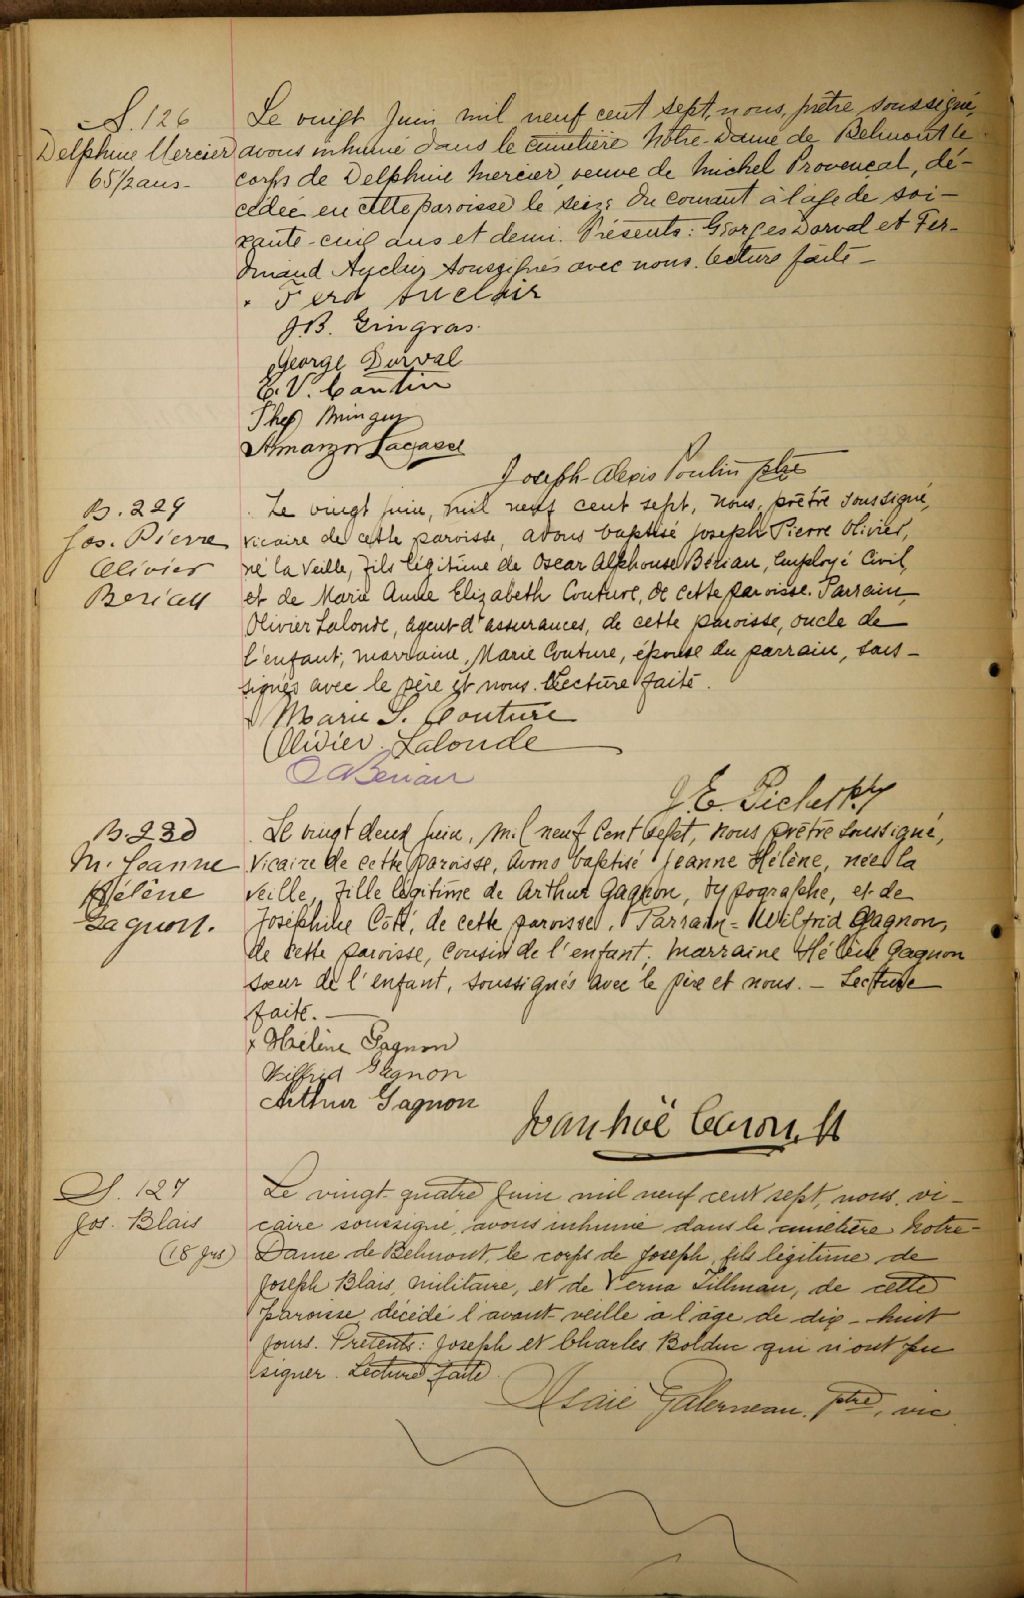 S. 126
Delphine Mercier
65 1/2 ans -
Le vingt Juin mil neuf cent sept, nous, prêtre soussigné,
avons inhumé dans le cimetière Notre-Dame de Belmont le
corps de Delphine Mercier, veuve de Michel Provencal, dé-
cédée en cette paroisse le seize du courant à l'age de soi-
xante-cinq ans et demi. Présents: Georges Dorval et Fer-
dinand Auclair soussignés avec nous. Lecture faite -
Ferd Auclair
J.B. Gingras.
George Dorval
E. V. Cantin
Amanzor Lagassé
Joseph-Alexis Poulin ptre
B. 229
Jos. Pierre
Olivier
Beriau
Le vingt juin, mil neuf cent sept, nous, prêtre soussigné,
vicaire de cette paroisse, avons baptisé Joseph Pierre Olivier,
né la veille, fils légitime de Oscar Alphonse Bériau, Employé Civil,
et de Marie Anne Elizabeth Couture, de cette paroisse. Parrain,
Olivier Lalonde, agent d'assurances, de cette paroisse, oncle de
l'enfant; marraine, Marie Couture, épouse du parrain, sous-
signés avec le père et nous. Lecture faite.
Marie S. Couture
Olivier Lalonde
O A Beriau
J. E. Pichet ptr
B. 230
M. Jeanne
Hélène
Gagnon.
Le vingt deux juin, mil neuf cent sept, nous prêtre soussigné,
vicaire de cette paroisse, avons baptisé Jeanne Hélène, née la
veille, fille légitime de Arthur Gagnon, typographe, et de
Joséphine Côté, de cette paroisse. Parrain = Wilfrid Gagnon,
de cette paroisse, cousin de l'enfant; marraine Hélène Gagnon
sœur de l'enfant, soussignés avec le père et nous. - Lecture
faite. -
x Hélène Gagnon
Wilfrid Gagnon
Arthur Gagnon
Ivanhoë Caron, ptr
S. 127
Jos. Blais
(18 jrs)
Le vingt-quatre Juin mil neuf cent sept, nous, vi-
caire soussigné, avons inhumé dans le cimetière Notre-
Dame de Belmont, le corps de Joseph, fils légitime de
Joseph Blais, militaire, et de Verna Tillman, de cette
paroisse, décédé l'avant-veille à l'âge de dix-huit
jours. Présents: Joseph et Charles Bolduc qui n'ont pu
signer. Lecture faite.
Isaïe Galerneau, ptre, vic